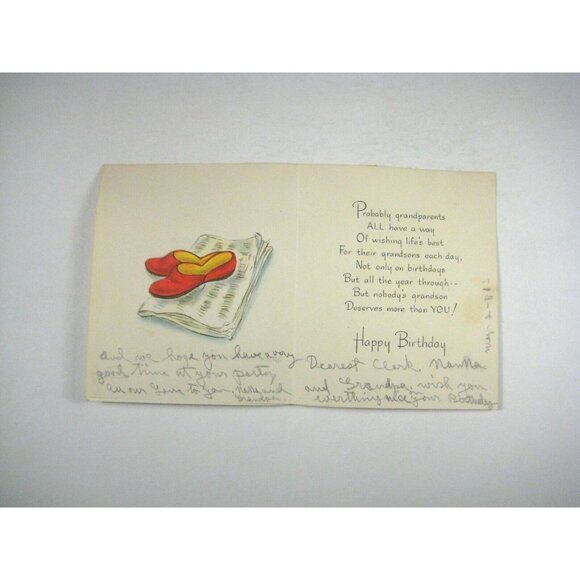 Probably grandparents
ALL have a way
Of wishing life's best
For their grandsons each day,
Not only on birthdays
But all the year through--
But nobody's grandson
Deserves more than YOU!
Happy Birthday
Dearest Clark, Nanna
and Grandpa, wish you
everthing nice your Birthday
and we hope you have a very
good time at your party
all our Love to you, Nana and
Grandpa.